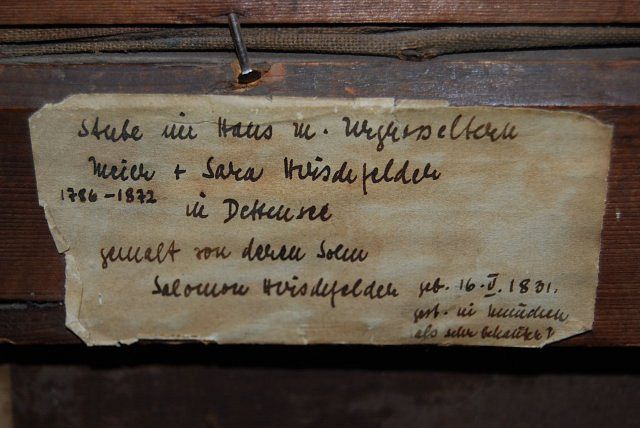 Stube im Haus m. Urgrosseltern
Meier + Sara Hirschfelder
1786-1872
in Dettensee
gemalt von deren Sohn
Salomon Hirschfelder geb. 16.V.1831.
gest. in München
als sehr